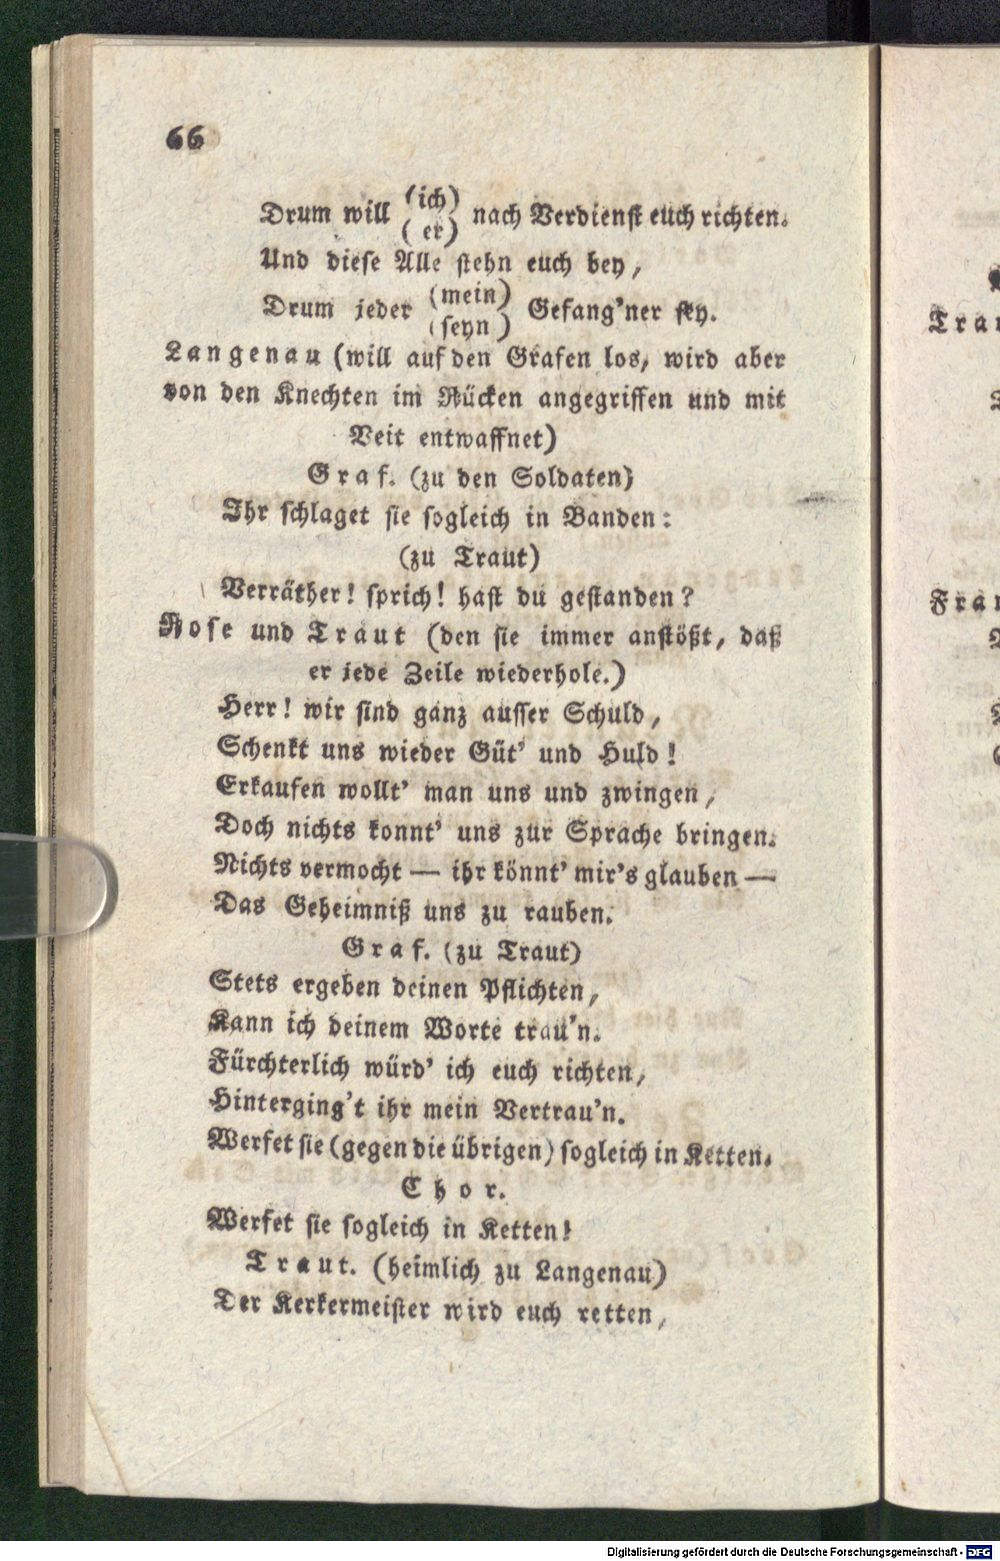 66
Drum will (ich) nach Verdienst euch richten.
( er)
Und diese Alle stehn euch bey,
Drum jeder (mein) Gefang'ner sey.
(seyn )
Langenau (will auf den Grafen los, wird aber
von den Knechten im Rücken angegriffen und mit
Veit entwaffnet)
Graf. (zu den Soldaten)
Ihr schlaget sie sogleich in Banden:
(zu Traut)
Verräther! sprich! hast du gestanden?
Rose und Traut (den sie immer anstößt, daß
er jede Zeile wiederhole.)
Herr! wir sind ganz ausser Schuld,
Schenkt uns wieder Güt' und Huld!
Erkaufen wollt' man uns und zwingen,
Doch nichts konnt' uns zur Sprache bringen.
Nichts vermocht — ihr könnt' mir's glauben —
Das Geheimniß uns zu rauben.
Graf. (zu Traut)
Stets ergeben deinen Pflichten,
Kann ich deinem Worte trau'n.
Fürchterlich würd' ich euch richten,
Hinterging't ihr mein Vertrau'n.
Werfet sie (gegen die übrigen) sogleich in Ketten.
Chor.
Werfet sie sogleich in Ketten!
Traut. (heimlich zu Langenau)
Der Kerkermeister wird euch retten,
Digitalisierung gefördert durch die Deutsche Forschungsgemeinschaft - DFG